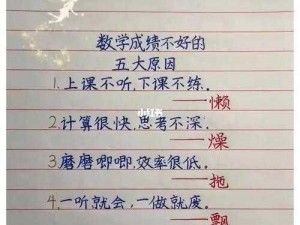 数学成绩不好的
五大原因
1.上课不听,下课不练.
——懒
小红书
2.计算很快,思考不深.
——燥
3.磨磨唧唧,效率很低.
——拖
4.一听就会,一做就废.
——飘